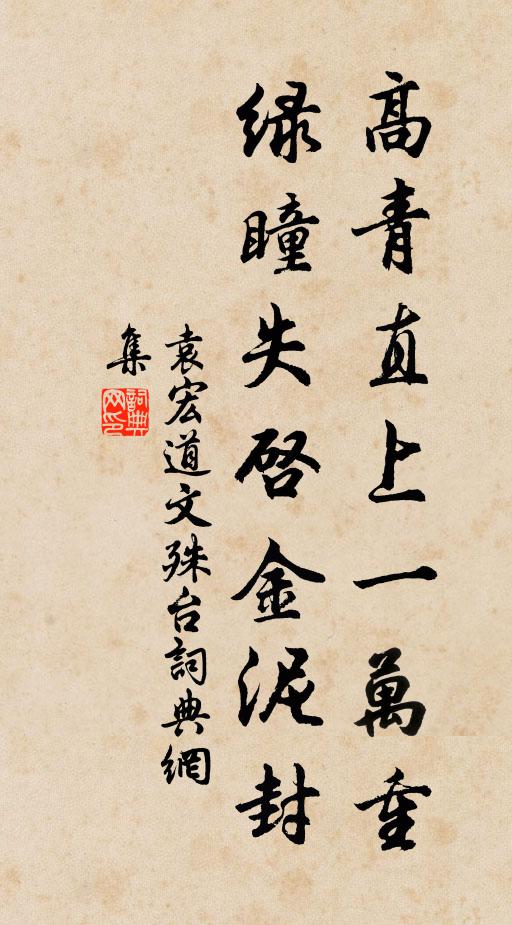 高青直上一萬重
绿瞳失啓金泥封
袁宏道文殊台詞典網
集
詞典网印